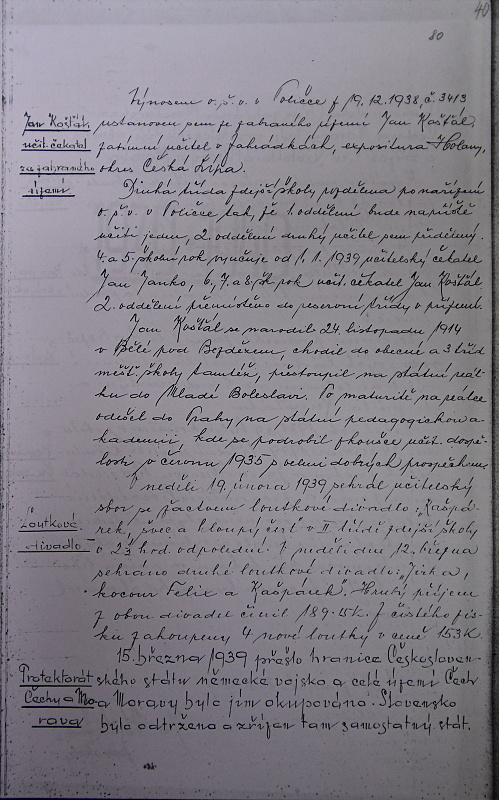 40
80
Výnosem o. š. v. v Poličce z 19.12.1938, č. 3413
Jan Košťál,
učit. čekatel
ze zabraného
území
ustanoven sem ze zabraného území Jan Košťál,
zatímní učitel v Zahrádkách, expositura Holany,
okres Česká Lípa.
Druhá třída zdejší školy rozdělena po nařízení
o. š. v. v Poličce tak, že 1. oddělení bude napříště
učiti jeden, 2. oddělení druhý učitel sem přidělený.
4. a 5. školní rok vyučuje od 1. 1. 1939 učitelský čekatel
Jan Janko, 6, 7. a 8. šk. rok učit. čekatel Jan Košťál.
2. oddělení přemístěno do reservní třídy v přízemí.
Jan Košťál se narodil 24. listopadu 1914
v Bělé pod Bezdězem, chodil do obecné a 3 tříd
měšť. školy tamtéž, přestoupil na státní reál-
ku do Mladé Boleslavi. Po maturitě na reálce
odešel do Prahy na státní pedagogickou a-
kademii, kde se podrobil zkoušce učit. dospě-
losti v červnu 1935 s velmi dobrým prospěchem.
Loutkové
divadlo
V neděli 19. února 1939 sehrál učitelský
sbor se žactvem loutkové divadlo „Kašpá-
rek, švec a hloupý čert" v II. třídě zdejší školy
v 2½ hod. odpolední. V neděli dne 12. března
sehráno druhé loutkové divadlo: „Jirka,
kocour Felix a Kašpárek". Hrubý příjem
z obou divadel činil 189.15 K. Z čistého zis-
ku zakoupeny 4 nové loutky v ceně 153 K.
Protektorát
Čechy a Mo-
rava
15. března 1939 přešlo hranice Českosloven-
ského státu německé vojsko a celé území Čech
a Moravy bylo jím okupováno. Slovensko
bylo odtrženo a zřízen tam samostatný stát.